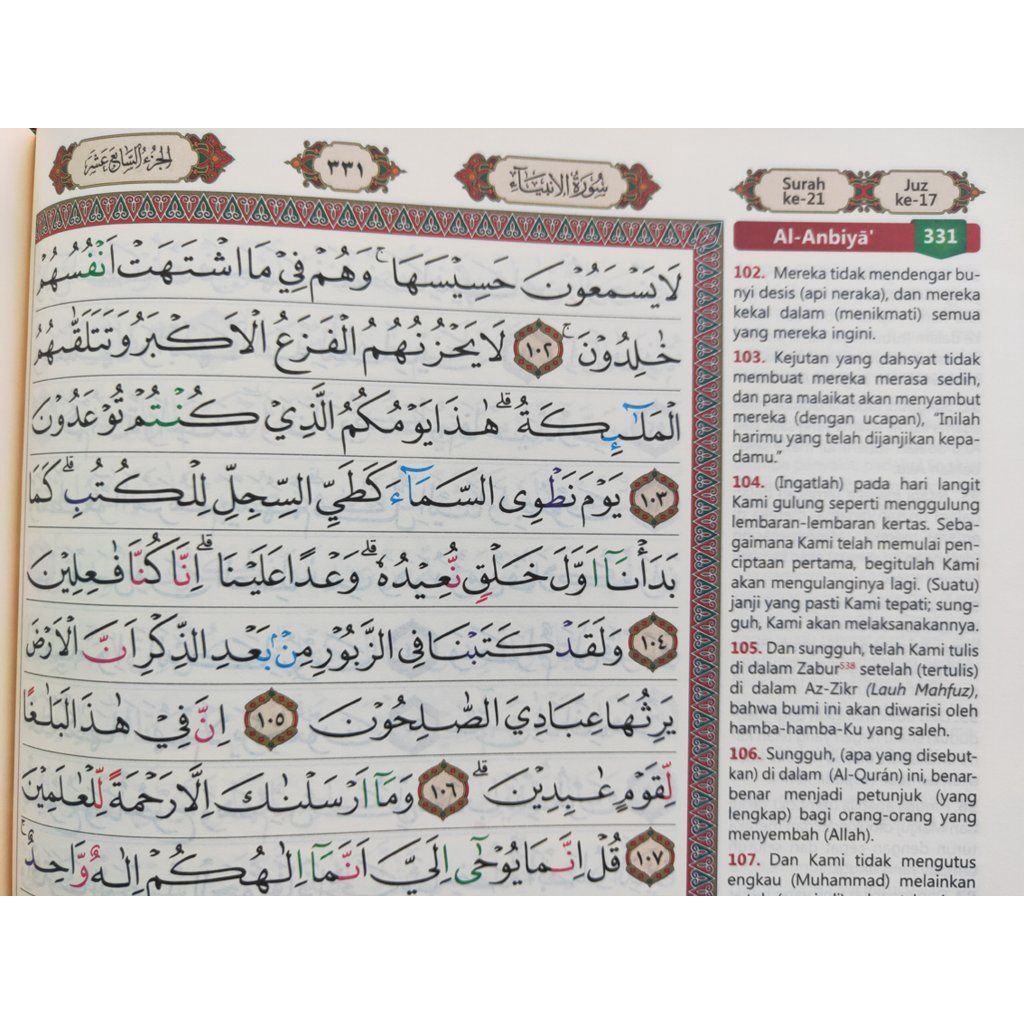 الجزء السابع عشر
٣٣١
سورة الانبياء
Surah ke-21
Juz ke-17
Al-Anbiyā' 331
لَا يَسْمَعُوْنَ حَسِيْسَهَاۚ وَهُمْ فِيْ مَا اشْتَهَتْ اَنْفُسُهُمْ
خٰلِدُوْنَۚ ١٠٢ لَا يَحْزُنُهُمُ الْفَزَعُ الْاَكْبَرُ وَتَتَلَقّٰىهُمُ
الْمَلٰۤىِٕكَةُۗ هٰذَا يَوْمُكُمُ الَّذِيْ كُنْتُمْ تُوْعَدُوْنَ
١٠٣ يَوْمَ نَطْوِى السَّمَاۤءَ كَطَيِّ السِّجِلِّ لِلْكُتُبِۗ كَمَا
بَدَأْنَآ اَوَّلَ خَلْقٍ نُّعِيْدُهٗۗ وَعْدًا عَلَيْنَاۗ اِنَّا كُنَّا فٰعِلِيْنَ
١٠٤ وَلَقَدْ كَتَبْنَا فِى الزَّبُوْرِ مِنْۢ بَعْدِ الذِّكْرِ اَنَّ الْاَرْضَ
يَرِثُهَا عِبَادِيَ الصّٰلِحُوْنَ ١٠٥ اِنَّ فِيْ هٰذَا لَبَلٰغًا
لِّقَوْمٍ عٰبِدِيْنَۗ ١٠٦ وَمَآ اَرْسَلْنٰكَ اِلَّا رَحْمَةً لِّلْعٰلَمِيْنَ
١٠٧ قُلْ اِنَّمَا يُوْحٰٓى اِلَيَّ اَنَّمَآ اِلٰهُكُمْ اِلٰهٌ وَّاحِدٌۚ
102. Mereka tidak mendengar bu-
nyi desis (api neraka), dan mereka
kekal dalam (menikmati) semua
yang mereka ingini.
103. Kejutan yang dahsyat tidak
membuat mereka merasa sedih,
dan para malaikat akan menyambut
mereka (dengan ucapan), "Inilah
harimu yang telah dijanjikan kepa-
damu."
104. (Ingatlah) pada hari langit
Kami gulung seperti menggulung
lembaran-lembaran kertas. Seba-
gaimana Kami telah memulai pen-
ciptaan pertama, begitulah Kami
akan mengulanginya lagi. (Suatu)
janji yang pasti Kami tepati; sung-
guh, Kami akan melaksanakannya.
105. Dan sungguh, telah Kami tulis
di dalam Zabur⁵³⁸ setelah (tertulis)
di dalam Az-Zikr (Lauh Mahfuz),
bahwa bumi ini akan diwarisi oleh
hamba-hamba-Ku yang saleh.
106. Sungguh, (apa yang disebut-
kan) di dalam (Al-Qurán) ini, benar-
benar menjadi petunjuk (yang
lengkap) bagi orang-orang yang
menyembah (Allah).
107. Dan Kami tidak mengutus
engkau (Muhammad) melainkan